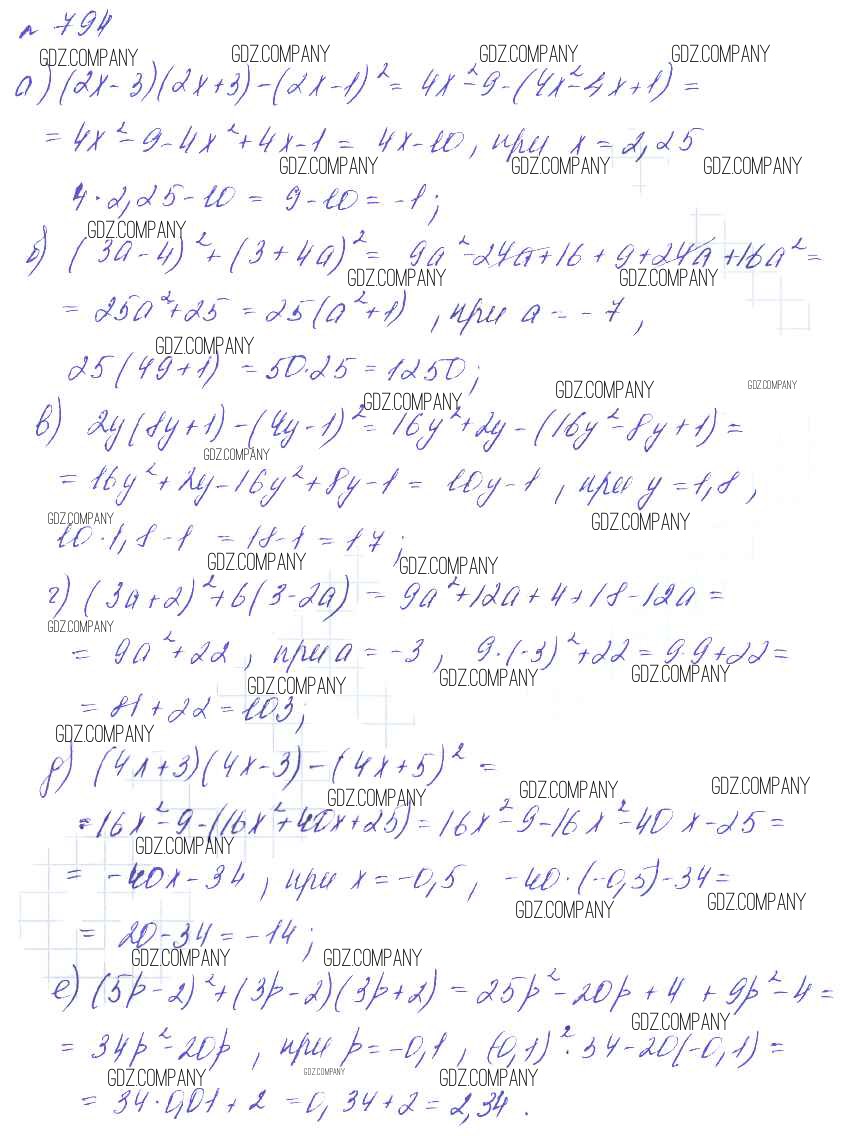 № 794
GDZ.COMPANY GDZ.COMPANY GDZ.COMPANY GDZ.COMPANY
а) (2x-3)(2x+3)-(2x-1)² = 4x²-9-(4x²-4x+1) =
= 4x²-9-4x²+4x-1 = 4x-10, при x = 2,25
GDZ.COMPANY GDZ.COMPANY GDZ.COMPANY
4·2,25-10 = 9-10 = -1;
GDZ.COMPANY
б) (3a-4)²+(3+4a)² = 9a²-24a+16+9+24a+16a² =
GDZ.COMPANY GDZ.COMPANY
= 25a²+25 = 25(a²+1), при a = -7,
GDZ.COMPANY
25(49+1) = 50·25 = 1250;
GDZ.COMPANY GDZ.COMPANY GDZ.COMPANY
в) 2y(8y+1)-(4y-1)² = 16y²+2y-(16y²-8y+1) =
GDZ.COMPANY
= 16y²+2y-16y²+8y-1 = 10y-1, при y = 1,8,
GDZ.COMPANY GDZ.COMPANY
10·1,8-1 = 18-1 = 17;
GDZ.COMPANY GDZ.COMPANY
г) (3a+2)²+6(3-2a) = 9a²+12a+4+18-12a =
GDZ.COMPANY
= 9a²+22, при a = -3, 9·(-3)²+22 = 9·9+22 =
GDZ.COMPANY GDZ.COMPANY GDZ.COMPANY
= 81+22 = 103;
GDZ.COMPANY
д) (4x+3)(4x-3)-(4x+5)² =
GDZ.COMPANY GDZ.COMPANY GDZ.COMPANY
= 16x²-9-(16x²+40x+25) = 16x²-9-16x²-40x-25 =
GDZ.COMPANY
= -40x-34, при x = -0,5, -40·(-0,5)-34 =
GDZ.COMPANY GDZ.COMPANY
= 20-34 = -14;
GDZ.COMPANY GDZ.COMPANY
е) (5p-2)²+(3p-2)(3p+2) = 25p²-20p+4+9p²-4 =
GDZ.COMPANY
= 34p²-20p, при p = -0,1, (-0,1)²·34-20(-0,1) =
GDZ.COMPANY GDZ.COMPANY GDZ.COMPANY
= 34·0,01+2 = 0,34+2 = 2,34.